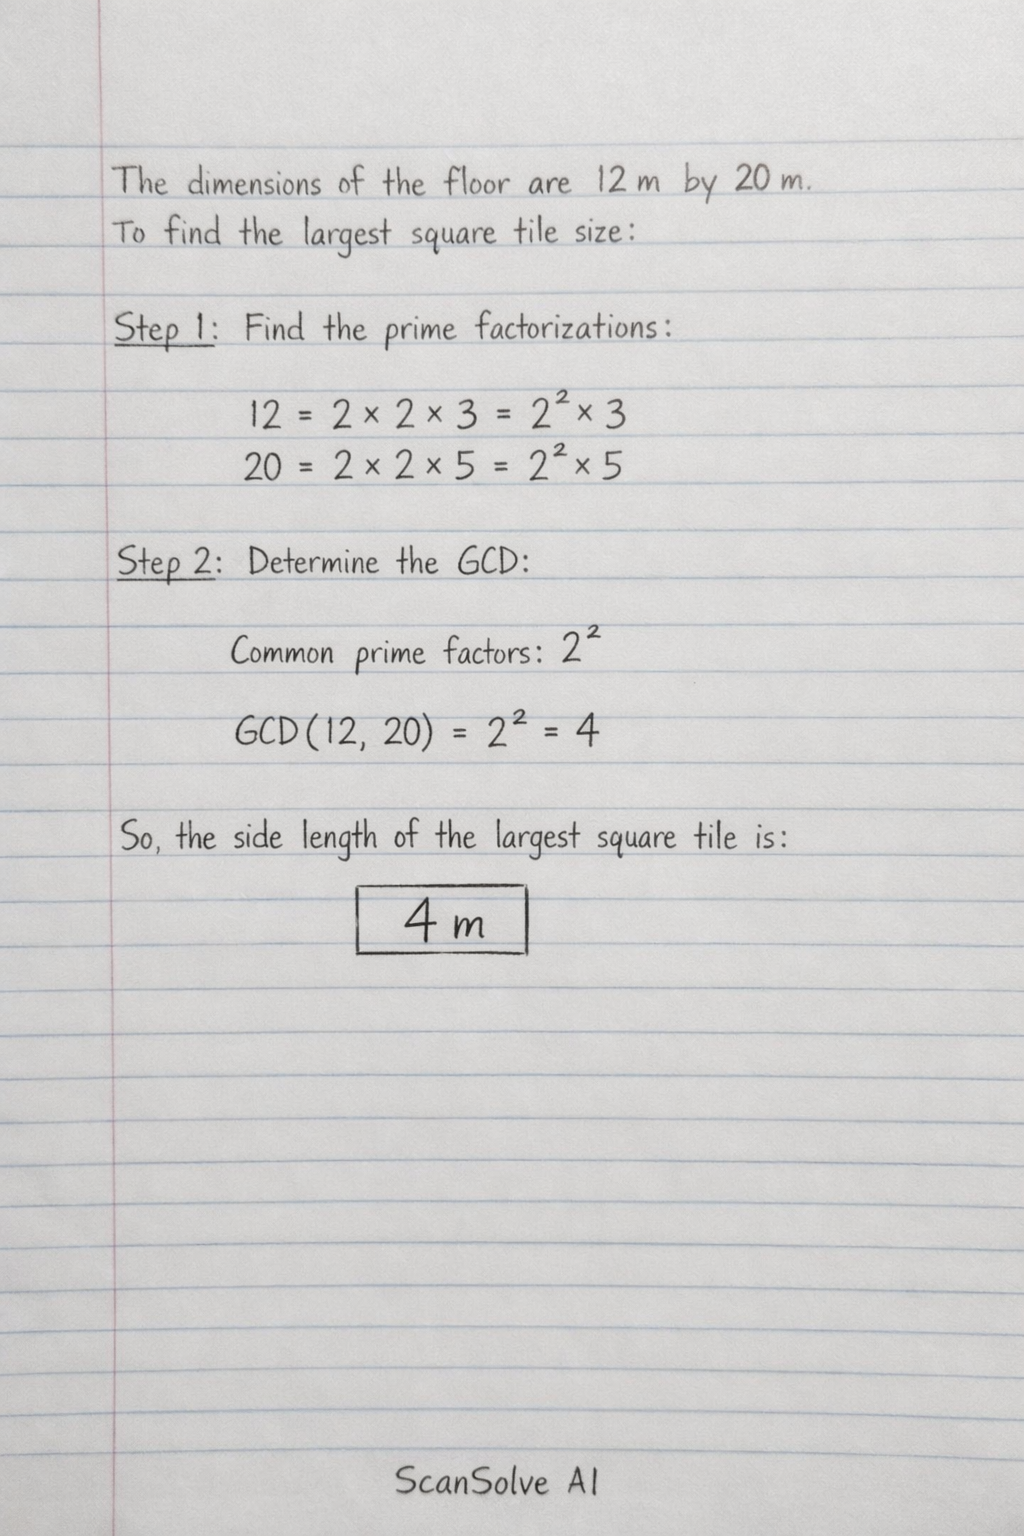 The dimensions of the floor are 12 m by 20 m.
To find the largest square tile size:
Step 1: Find the prime factorizations:
12 = 2 × 2 × 3 = 2² × 3
20 = 2 × 2 × 5 = 2² × 5
Step 2: Determine the GCD:
Common prime factors: 2²
GCD(12, 20) = 2² = 4
So, the side length of the largest square tile is:
4 m
ScanSolve AI